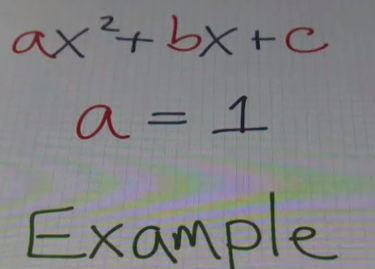 ax²+bx+c
a = 1
Example